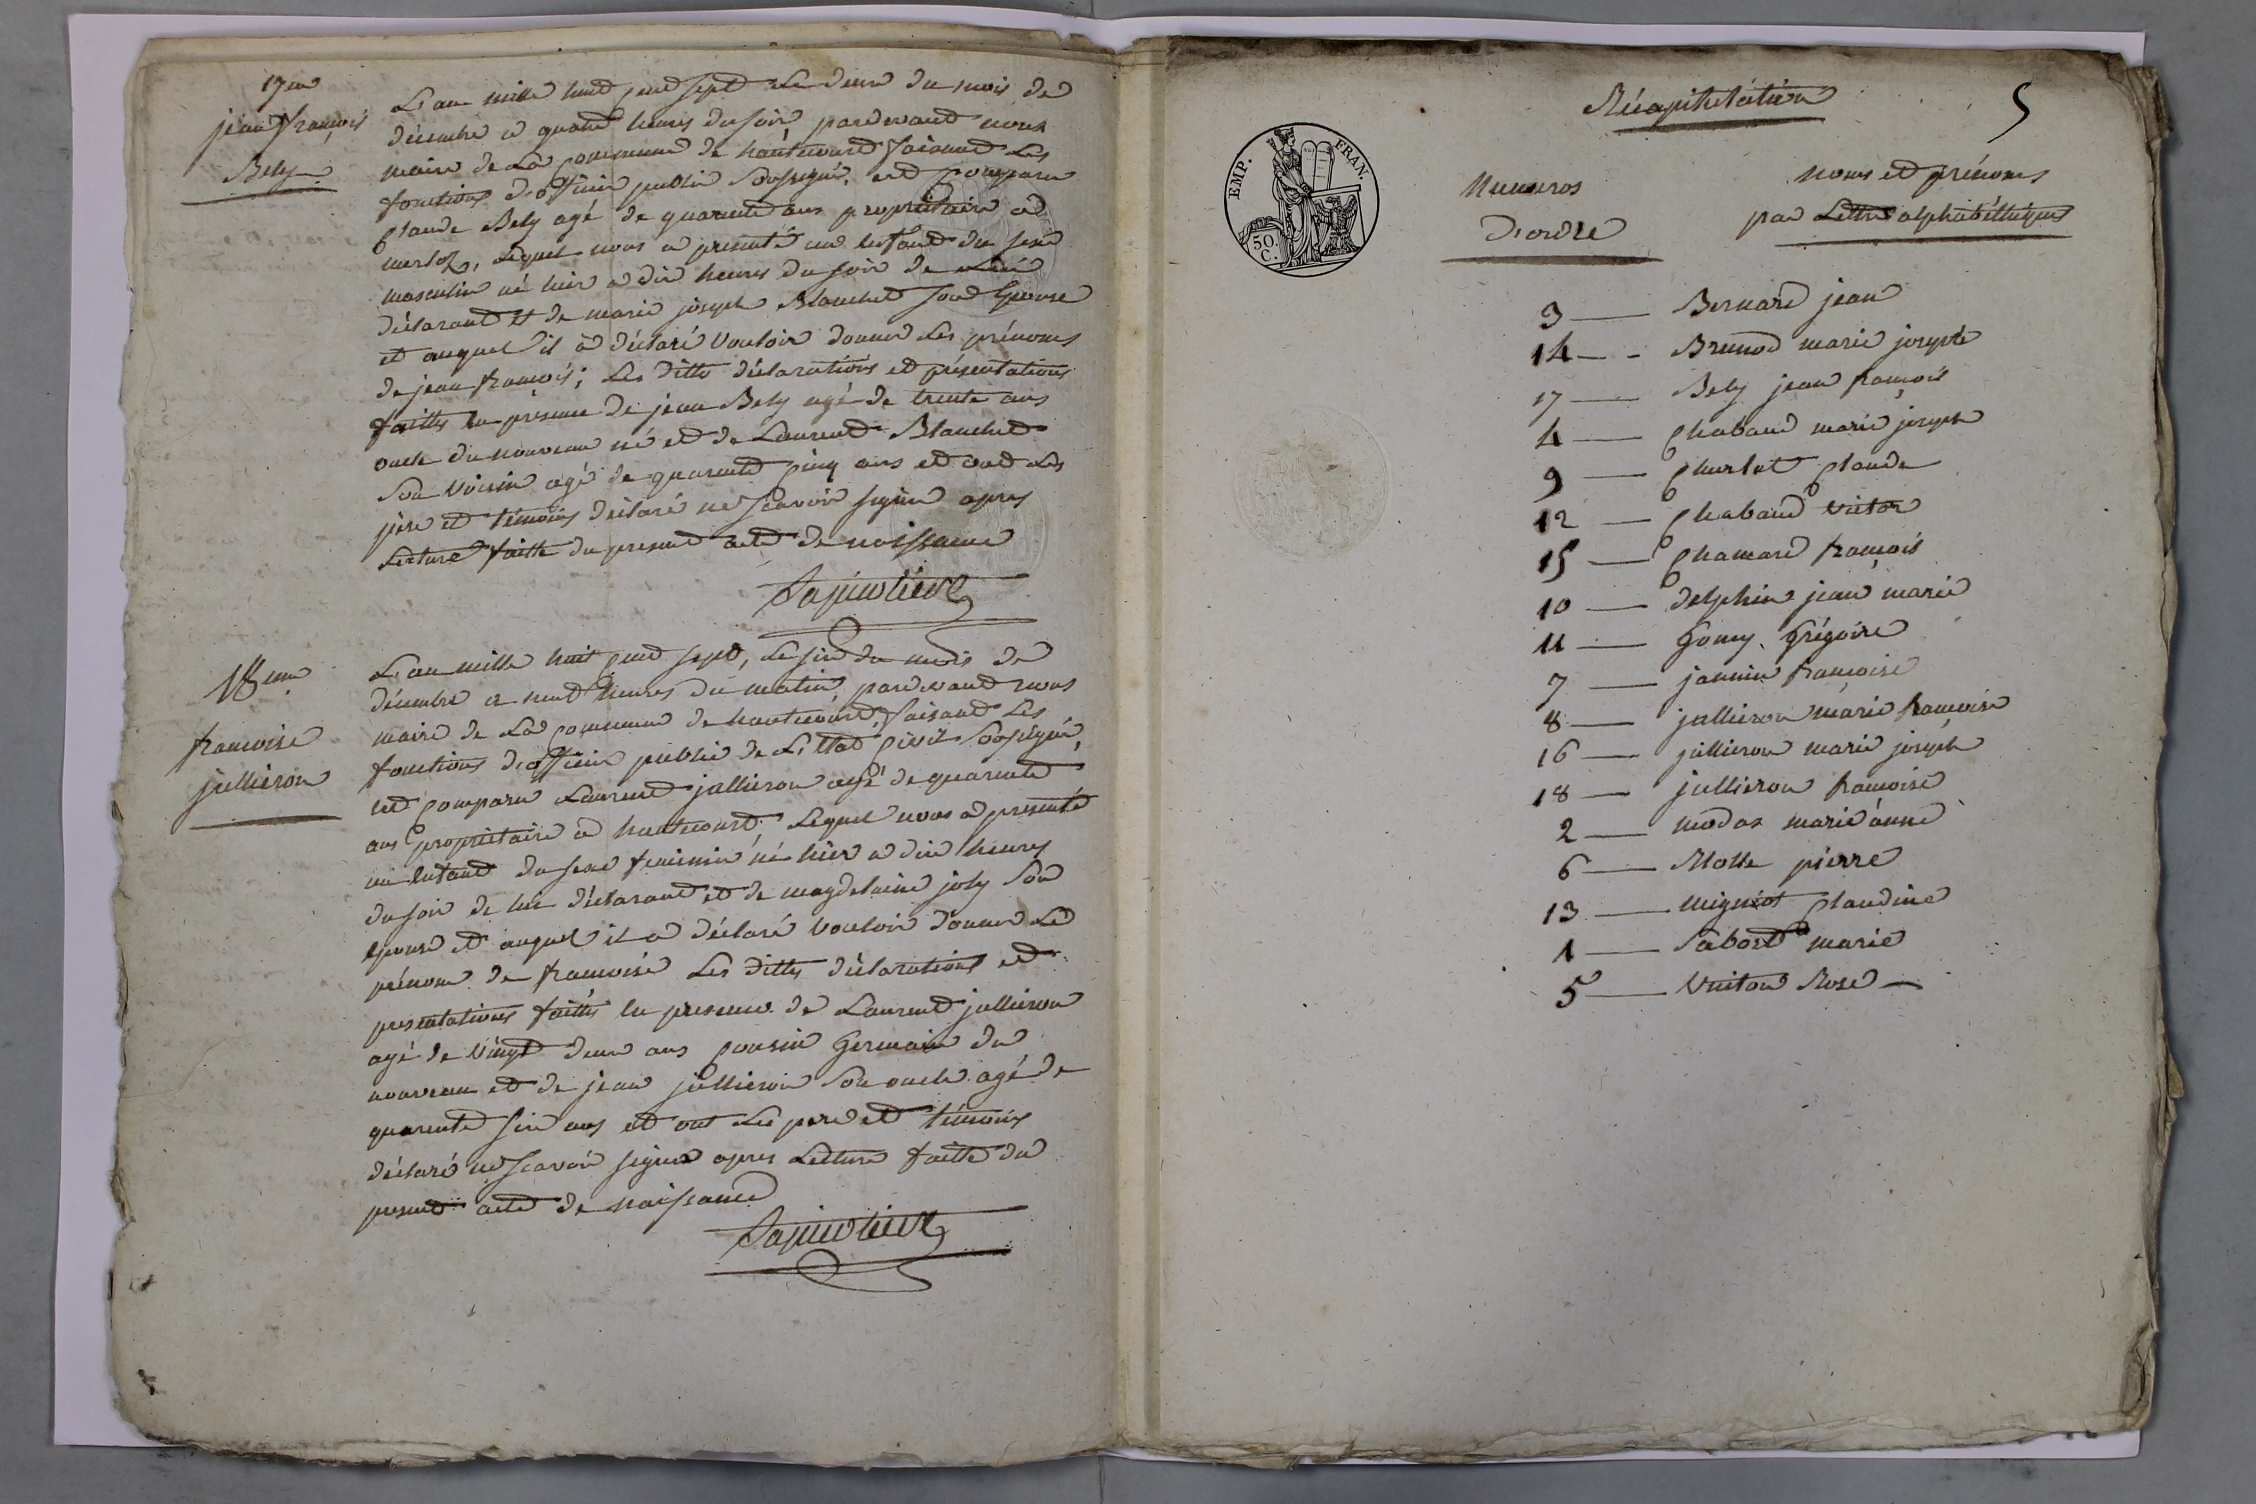 17me
jean françois
Bely
L'an mille huit cent sept Le deux du mois de
décembre a quatre heures du soir pardevant nous
maire de La commune de hautecourt faisant Les
fonctions d'officier public Soussigné, est comparu
Claude Bely agé de quarante ans propriétaire a
, Lequel nous a presenté un enfant du sexe
masculin né hier a dix heures du soir de Lui
déclarant et de marie joseph Blanchet son Epouse
et auquel il a déclaré Vouloir donner Les prénoms
de jean françois; Les dittes déclarations et présentations
faittes en présence de jean Bely agé de trente ans
oncle du nouveau né et de Laurent Blanchet
Son Voisin agé de quarante cinq ans et ont Les
père et témoins déclaré ne scavoir signer apres
Lecture faitte du present acte de naissance
18me
francoise
jullieron
L'an mille huit cent sept, Le six du mois de
décembre a neuf heures du matin, pardevant nous
maire de La commune de hautecourt, faisant Les
fonctions d'officier public de L'Ettat Civil Soussigné,
est comparu Laurent jullieron agé de quarante
ans propriétaire a hautecourt, Lequel nous a presenté
un Enfant du sexe feminin né hier a dix heures
du soir de lui déclarant et de magdelaine joly Son
Epouse et auquel il a déclaré Vouloir donner Le
prénom de francoise Les dittes déclarations et
presentations faittes en presence de Laurent jullieron
agé de Vingt deux ans Cousin Germain du
nouveau et de jean jullieron Son oncle agé de
quarante six ans et ont Les pere et témoins
déclaré ne scavoir signer apres Lecture faitte du
present acte de naissance
Récapitulation
5
EMP. FRAN.
50.
C.
Numeros
D'ordre
noms et prénoms
par Lettres alphabéttiques
3 — Bernard jean
14 — Brunod marie josephte
17 — Bely jean françois
4 — Chabaud marie joseph
9 — Claude
12 — Chabaud Victor
15 — Chamard françois
10 — delphin jean marie
11 — Gomy Grégoire
7 — jannin francoise
8 — jullieron marie francoise
16 — jullieron marie joseph
18 — jullieron francoise
2 — marie anne
6 — Molle pierre
13 — mignot Claudine
1 — Sabord marie
5 — Vuiton Rose —